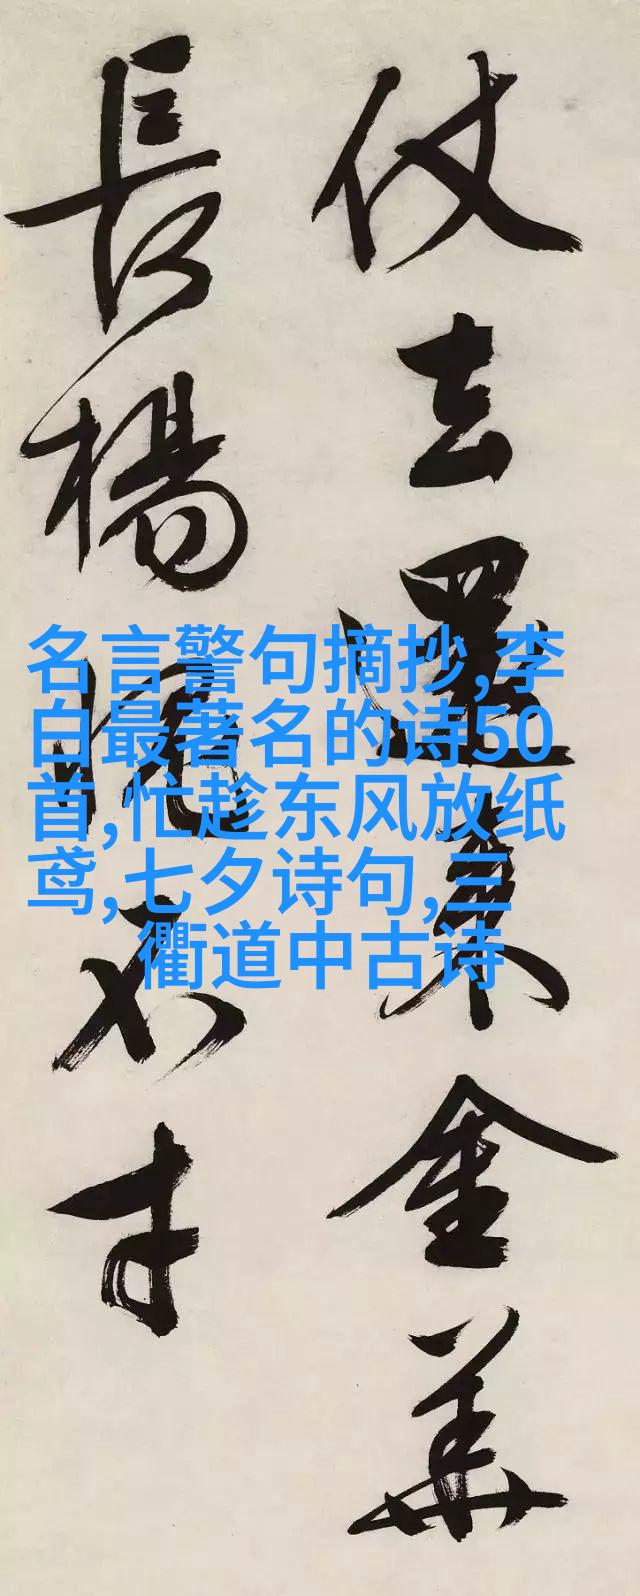 仗去還金華
長楊不才
名言警句摘抄,李
白最著名的诗50
首,忙趁东风放纸
鸢,七夕诗句,三
衢道中古诗